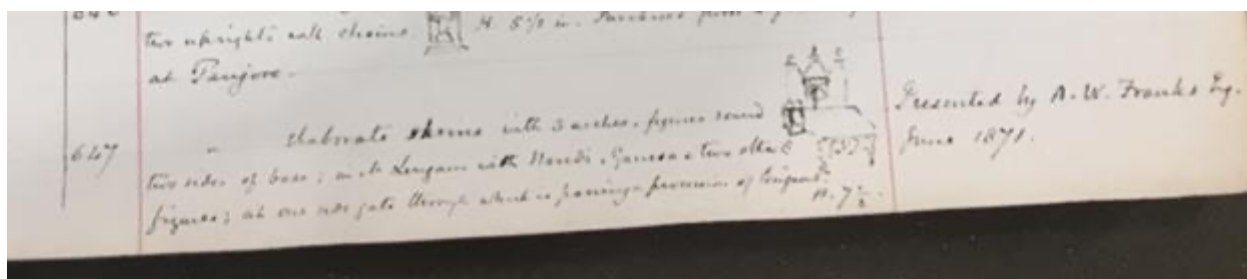 646
two uprights with chains. H. 5 1/2 in. Purchased from a
at Tanjore.
647 " Elaborate shrine with 3 arches. figures round
two sides of base; in it Lingam with Nandi, Ganesa & two other
figures; at one side gate through which is passing a procession of
H. 7 1/2.
Presented by A. W. Franks Esq.
June 1871.